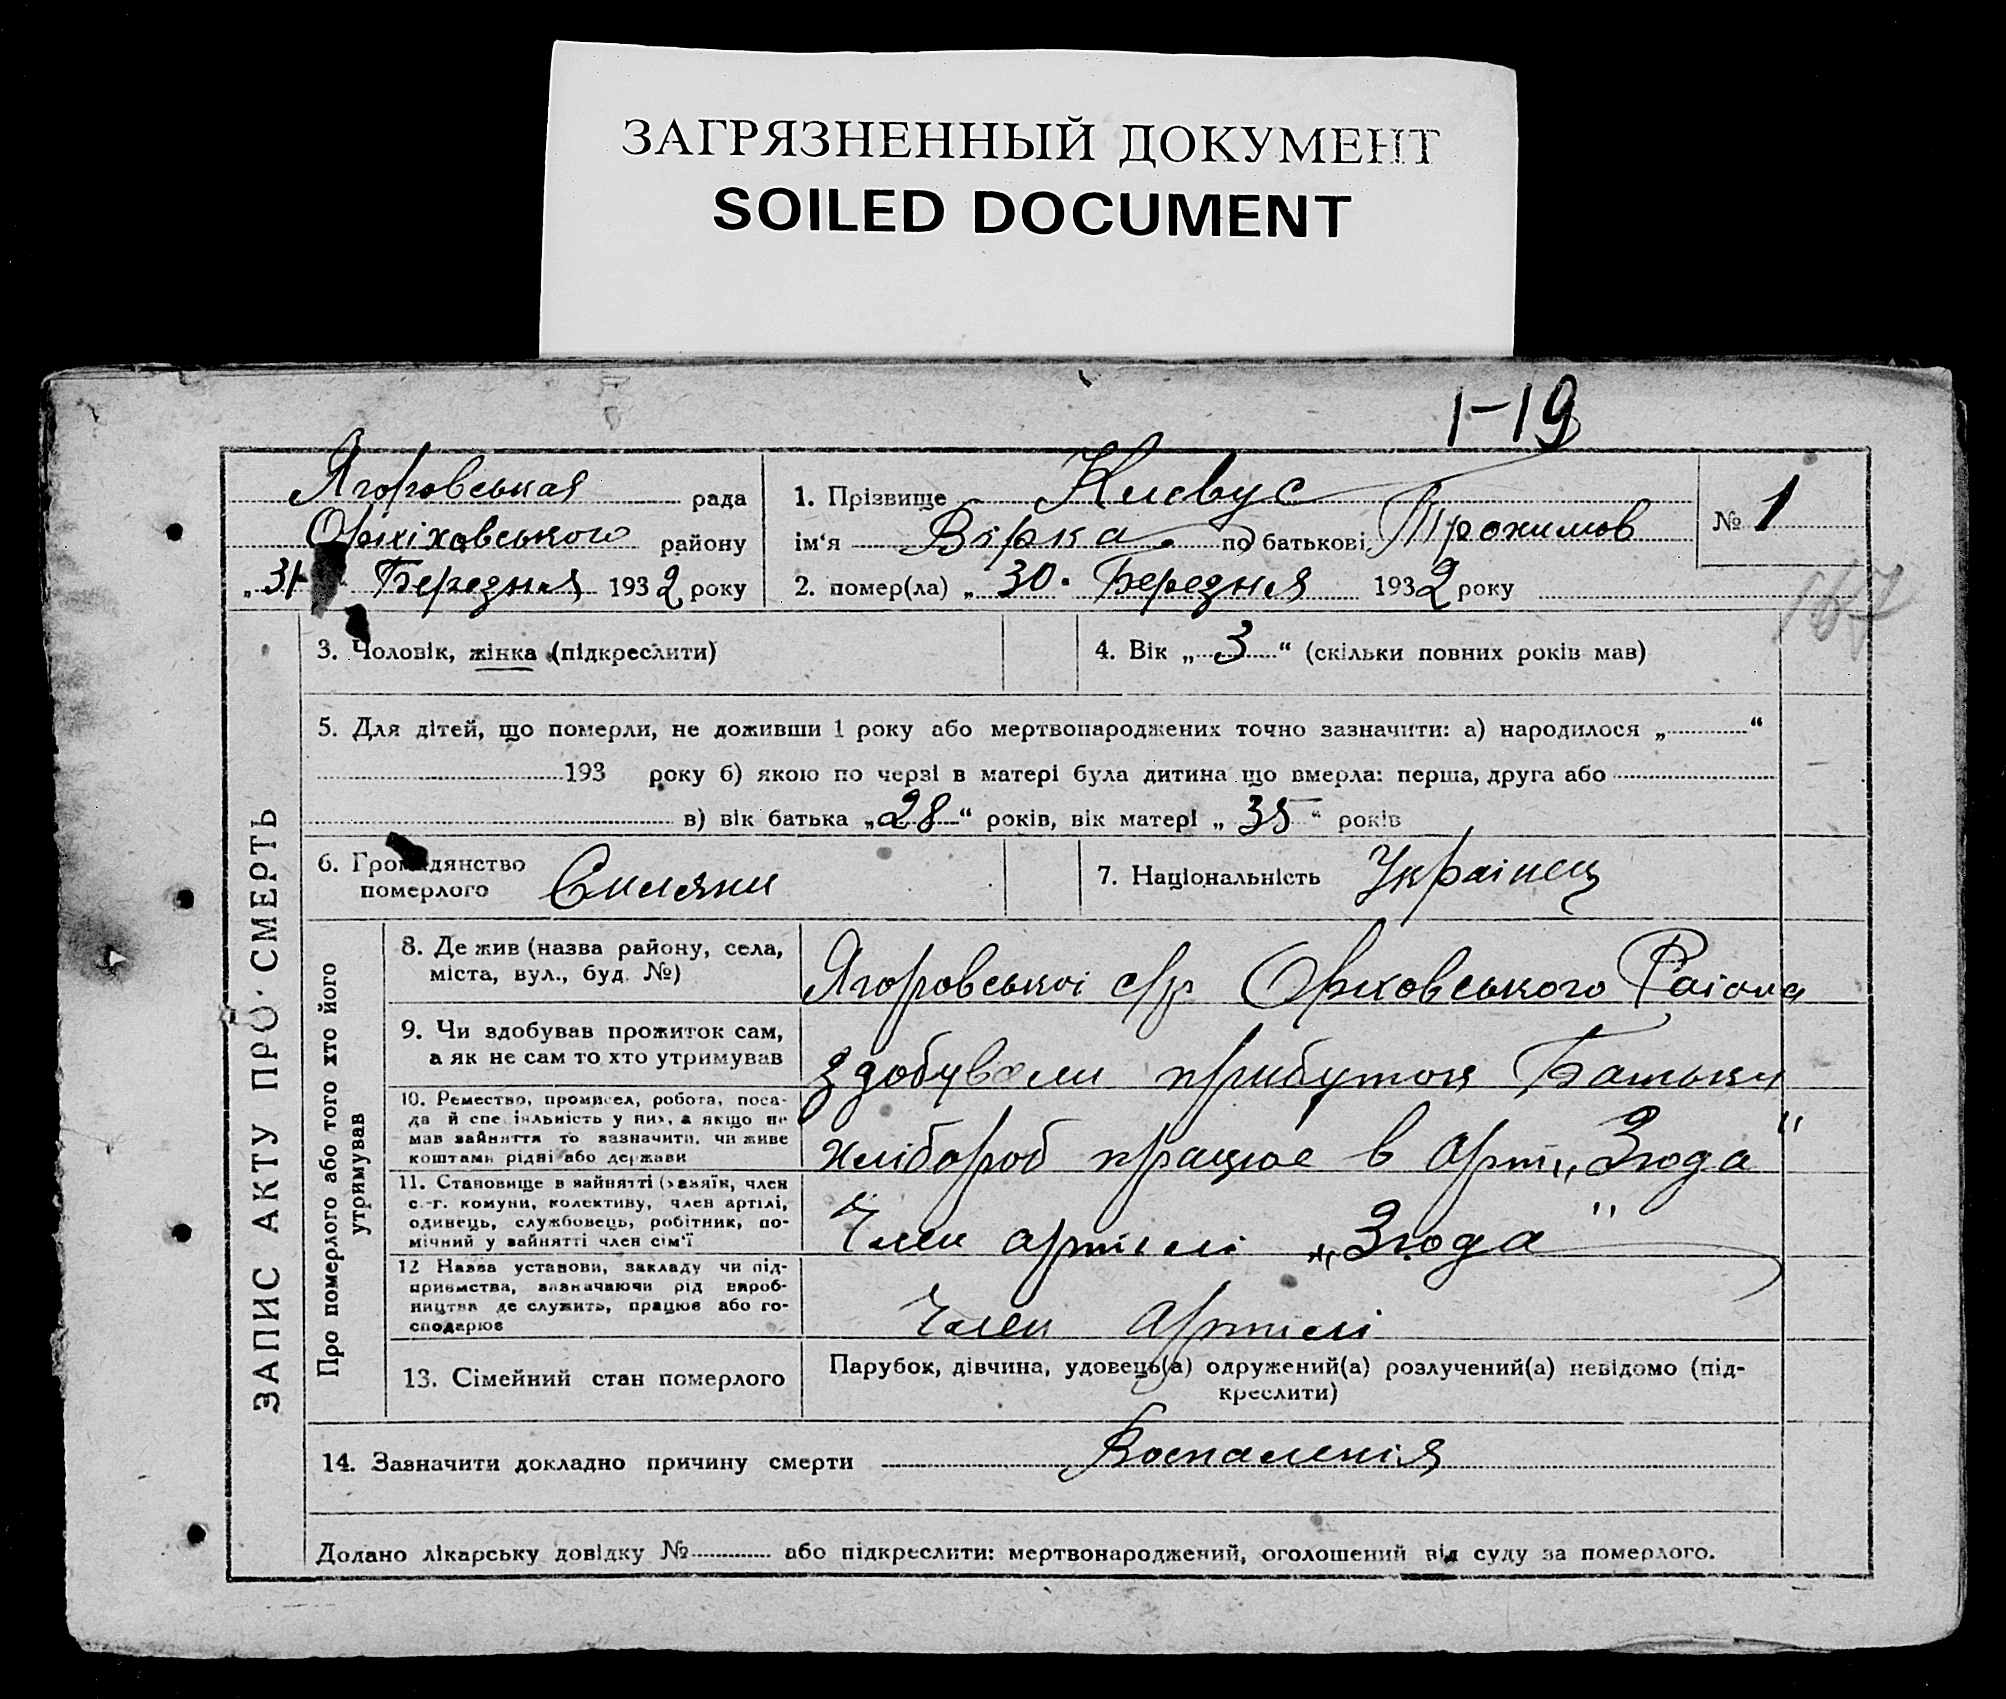 ЗАГРЯЗНЕННЫЙ ДОКУМЕНТ
SOILED DOCUMENT
1-19
Ягоровськая рада
Оріхіховського району
„31“ Березня 1932 року
1. Прізвище Клевус
ім'я Вірка по батькові Трохимов
2. помер(ла) „30. Березня 1932 року
№ 1
167
ЗАПИС АКТУ ПРО СМЕРТЬ
3. Чоловік, жінка (підкреслити)
4. Вік „3“ (скільки повних років мав)
5. Для дітей, що померли, не доживши 1 року або мертвонароджених точно зазначити: а) народилося „ “
193 року б) якою по черзі в матері була дитина що вмерла: перша, друга або
в) вік батька „28“ років, вік матері „35“ років
6. Громадянство
померлого Силяни
7. Національність Украінец
Про померлого або того хто його
утримував
8. Де жив (назва району, села,
міста, вул., буд. №)
Ягоровськоі с/р Орховського Раіона
9. Чи здобував прожиток сам,
а як не сам то хто утримував
здобували прибуток Батьки
10. Ремество, промисел, робота, поса-
да й спеціяльність у них, а якщо не
мав зайняття то зазначити, чи живе
коштами рідні або держави
хлібороб працює в арт „Згода"
11. Становище в зайнятті (хазяїн, член
с.-г. комуни, колективу, член артілі,
одинець, службовець, робітник, по-
мічний у зайнятті член сім'ї
Член артілі „Згода"
12 Назва установи, закладу чи під-
приємства, зазначаючи рід вироб-
ництва де служить, працює або го-
сподарює
Член Артілі
13. Сімейний стан померлого
Парубок, дівчина, удовець(а) одружений(а) розлучений(а) невідомо (під-
креслити)
14. Зазначити докладно причину смерти Воспаленія
Додано лікарську довідку № або підкреслити: мертвонароджений, оголошений від суду за померлого.